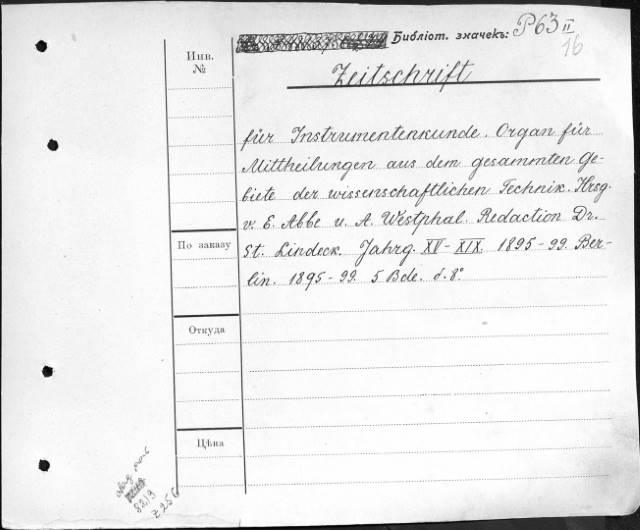 Библіот. значекъ: P63 II
16
Инв.
№
Zeitschrift
für Instrumentenkunde. Organ für
Mittheilungen aus dem gesammten Ge-
biete der wissenschaftlichen Technik. Hrsg.
v. E. Abbe u. A. Westphal. Redaction Dr.
St. Lindeck. Jahrg. XV-XIX. 1895-99. Ber-
lin. 1895-99. 5 Bde. d. 8°
По заказу
Откуда
Цѣна
83/9
Z 256